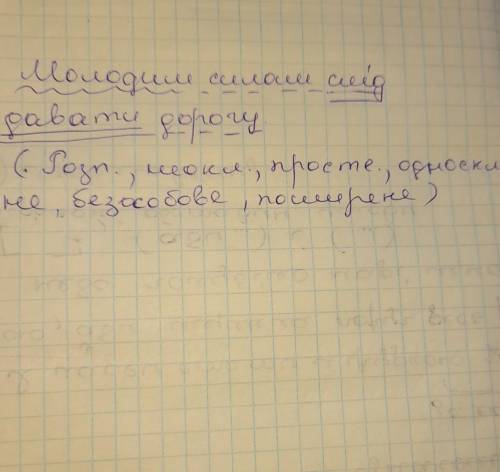 Молодим силам слід
давати дорогу
(. Розп., неокл., просте., односкл
не, безособове, поширене)